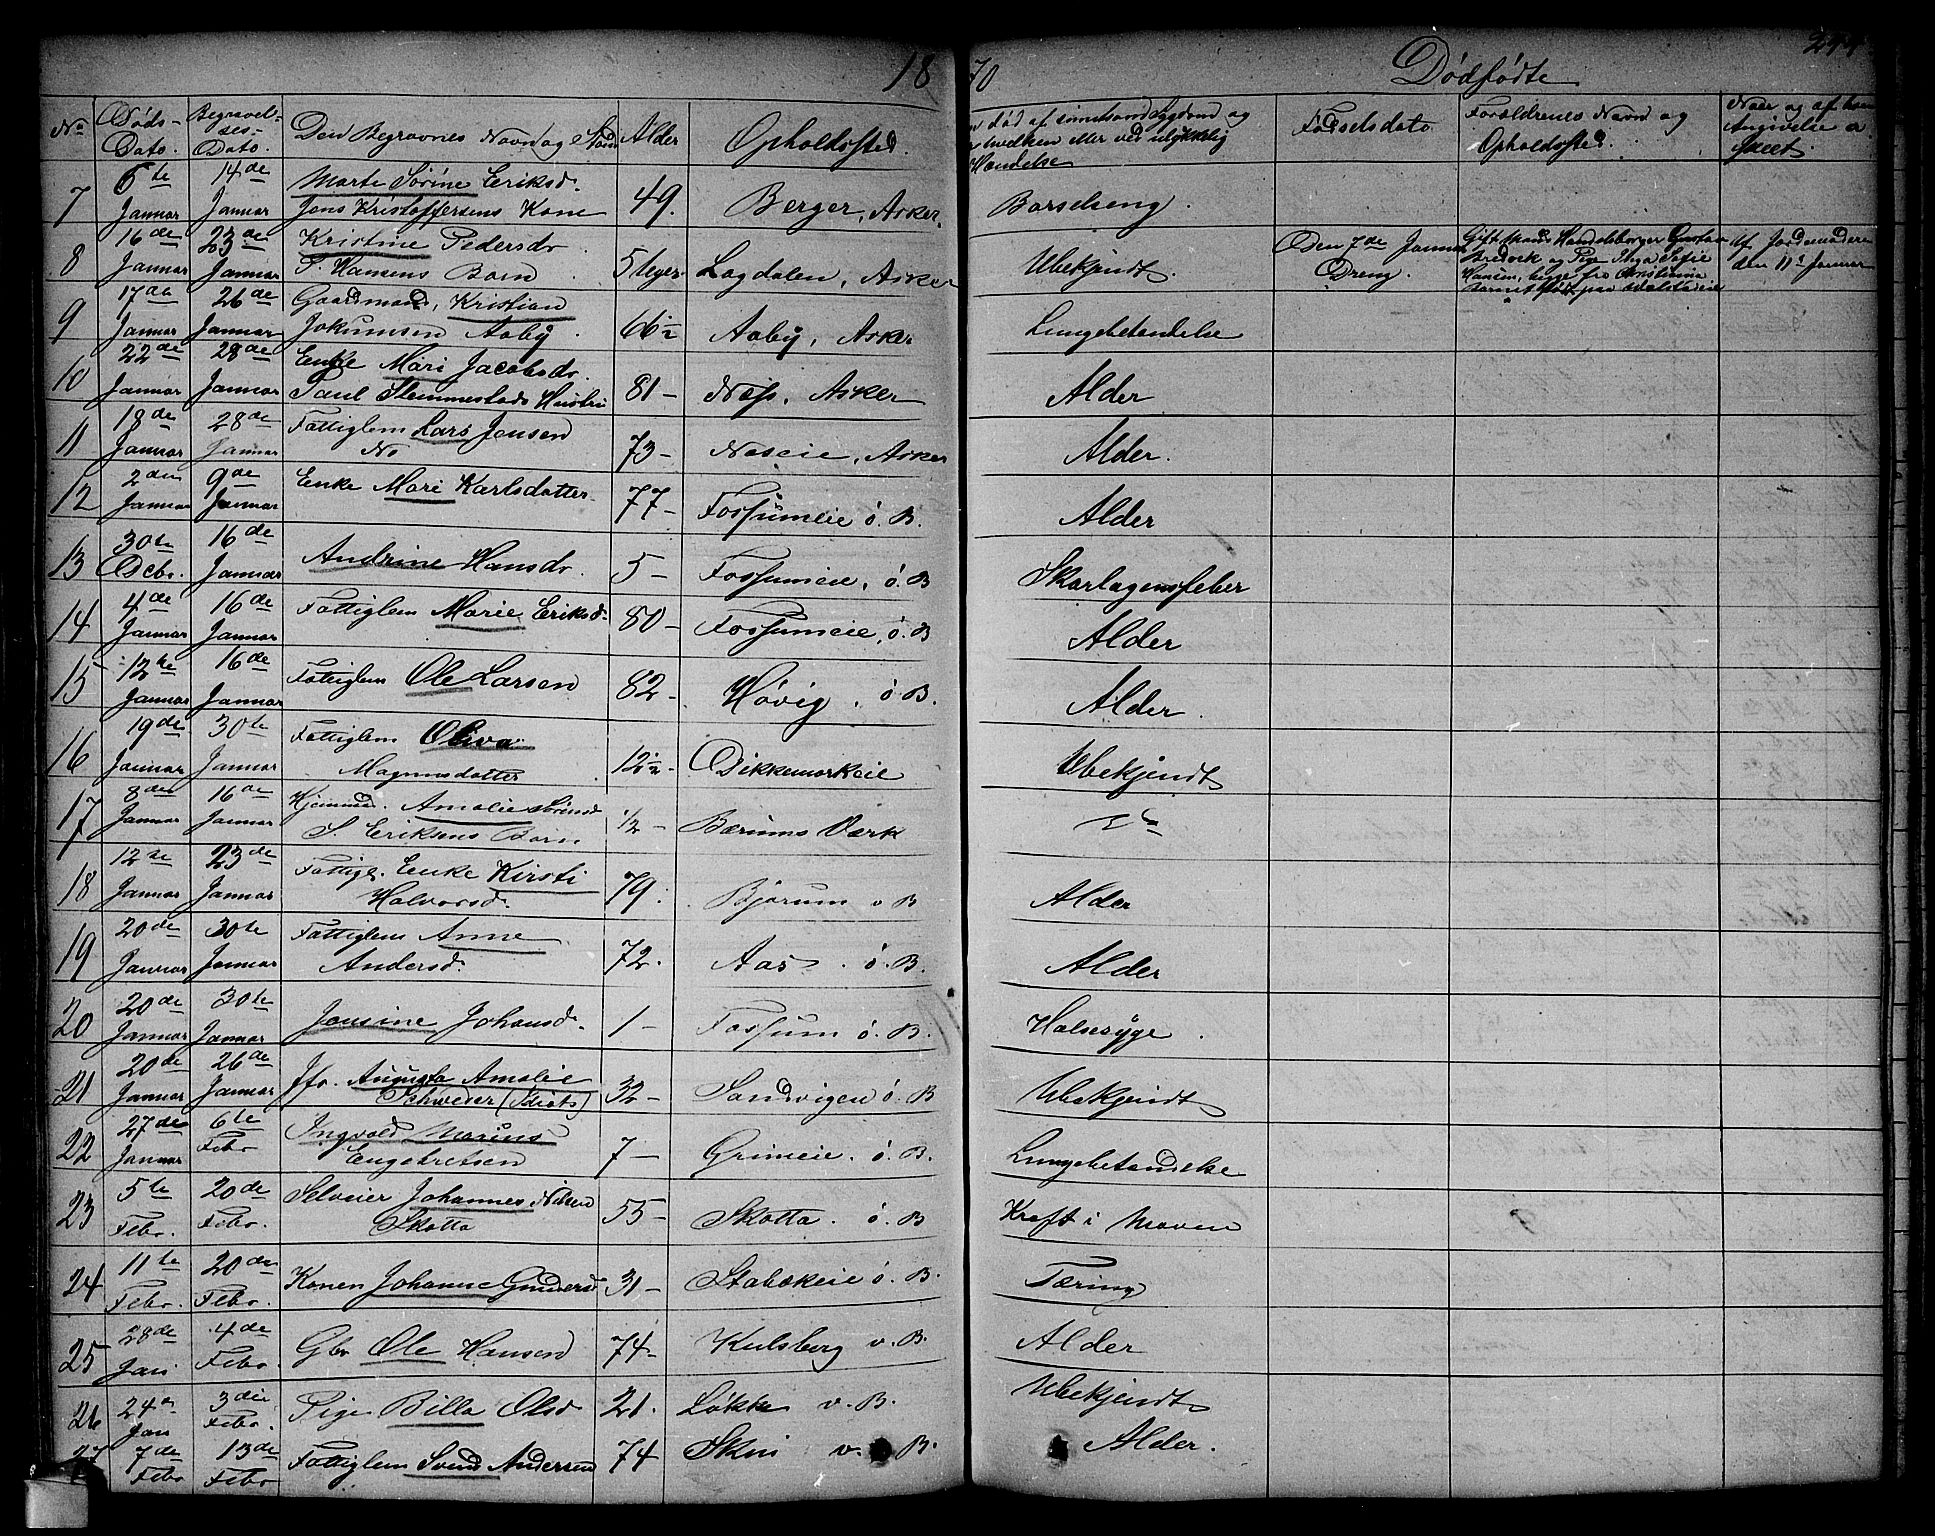 18
70
Dødfødte
No
Døds-
Dato.
Begravel-
ses-
Dato.
Den Begravnes Navn og
Alder
Opholdssted.
død af smitsom Sygdom og
hvilken eller ved ulykkelig
Hændelse
Fødselsdato
Forældrenes Navn og
Opholdssted.
Naar og af hvem
Angivelse er
skeet.
7
6te
Januar
14de
Januar
Marte Sørine Eriksd.
Jens Kristoffersens Kone
49.
Berger, Asker.
Barselseng.
8
16de
Januar
23de
Januar
Kristine Pedersdr
P. Hansens Barn
5 Uger
Løgdalen, Asker
Ubekjendt.
Den 7de Januar
Dreng.
Gift Mand Handelsborger Gustav
Bredvek og Pige Inga Sofie
Hansen, begge fra Christiania
Barnet født paa Hvalstadeie
Af Jordemoderen
den 11te Januar
9
17de
Januar
26de
Januar
Gaardmand, Kristian
Jokumsen Aaby.
66½
Aaby, Asker
Lungebetændelse
10
22de
Januar
28de
Januar
Enke Mari Jacobsdr.
Paul Slemmestads Hustru
81 -
Næs, Asker
Alder
11
18de
Januar
28de
Januar
Fattiglem Lars Jensen
No
73 -
Neseie, Asker
Alder.
12
2den
Januar
9de
Januar
Enke Mari Karlsdatter
77 -
Fossumeie ö. B.
Alder
13
30te
Decbr.
16de
Januar
Andrine Hansdr
5 -
Fossumeie, ö. B
Skarlagensfeber
14
4de
Januar
16de
Januar
Fattiglem Marie Eriksd.
80 -
Fossumeie, ö. B
Alder
15
12te
Januar
16de
Januar
Fattiglem Ole Larsen
82 -
Høvig. ö B.
Alder.
16
19de
Januar
30te
Januar
Fattiglem Oliva
Magnusdatter
12½ -
Dikkemarkeie
Ubekjendt
17
8de
Januar
16de
Januar
Hjemmed. Amalie Sørensd
S. Eriksens Barn
½ -
Bærums Værk
Do
18
12te
Januar
23de
Januar
Fattigl. Enke Kirsti
Halvorsd.
79.
Bjørum v B
Alder
19
20de
Januar
30te
Januar
Fattiglem Anne
Andersd.
72.
Aas. ö. B.
Alder
20
20de
Januar
30te
Januar
Jensine Johansd.
1 -
Fossum ö. B.
Halsesyge.
21
20de
Januar
26de
Januar
Jfr. Augusta Amalie
Schweser (Idiot)
32 -
Sandvigen ö. B
Ubekjendt
22
27de
Januar
6te
Febr
Ingvald Marius
Engebretsen
7 -
Grimeie. ö. B.
Lungebetændelse
23
5te
Febr.
20de
Febr.
Selveier Johannes Nilsen
Skotta
55 -
Skotta. ö. B
Kræft i Maven
24
11te
Febr.
20de
Febr.
Konen Johanne Gundersd
31 -
Stabækeie ö. B.
Tæring
25
28de
Jan
4de
Febr.
Gbr Ole Hansen
74 -
Kulsberg v. B.
Alder
26
24de
Jan
3die
Febr.
Pige Billa Olsd
21.
Løkke v. B.
Ubekjendt
27
7de
Febr
13de
Febr
Fattiglem Svend Andersen
74
Skui v. B.
Alder.